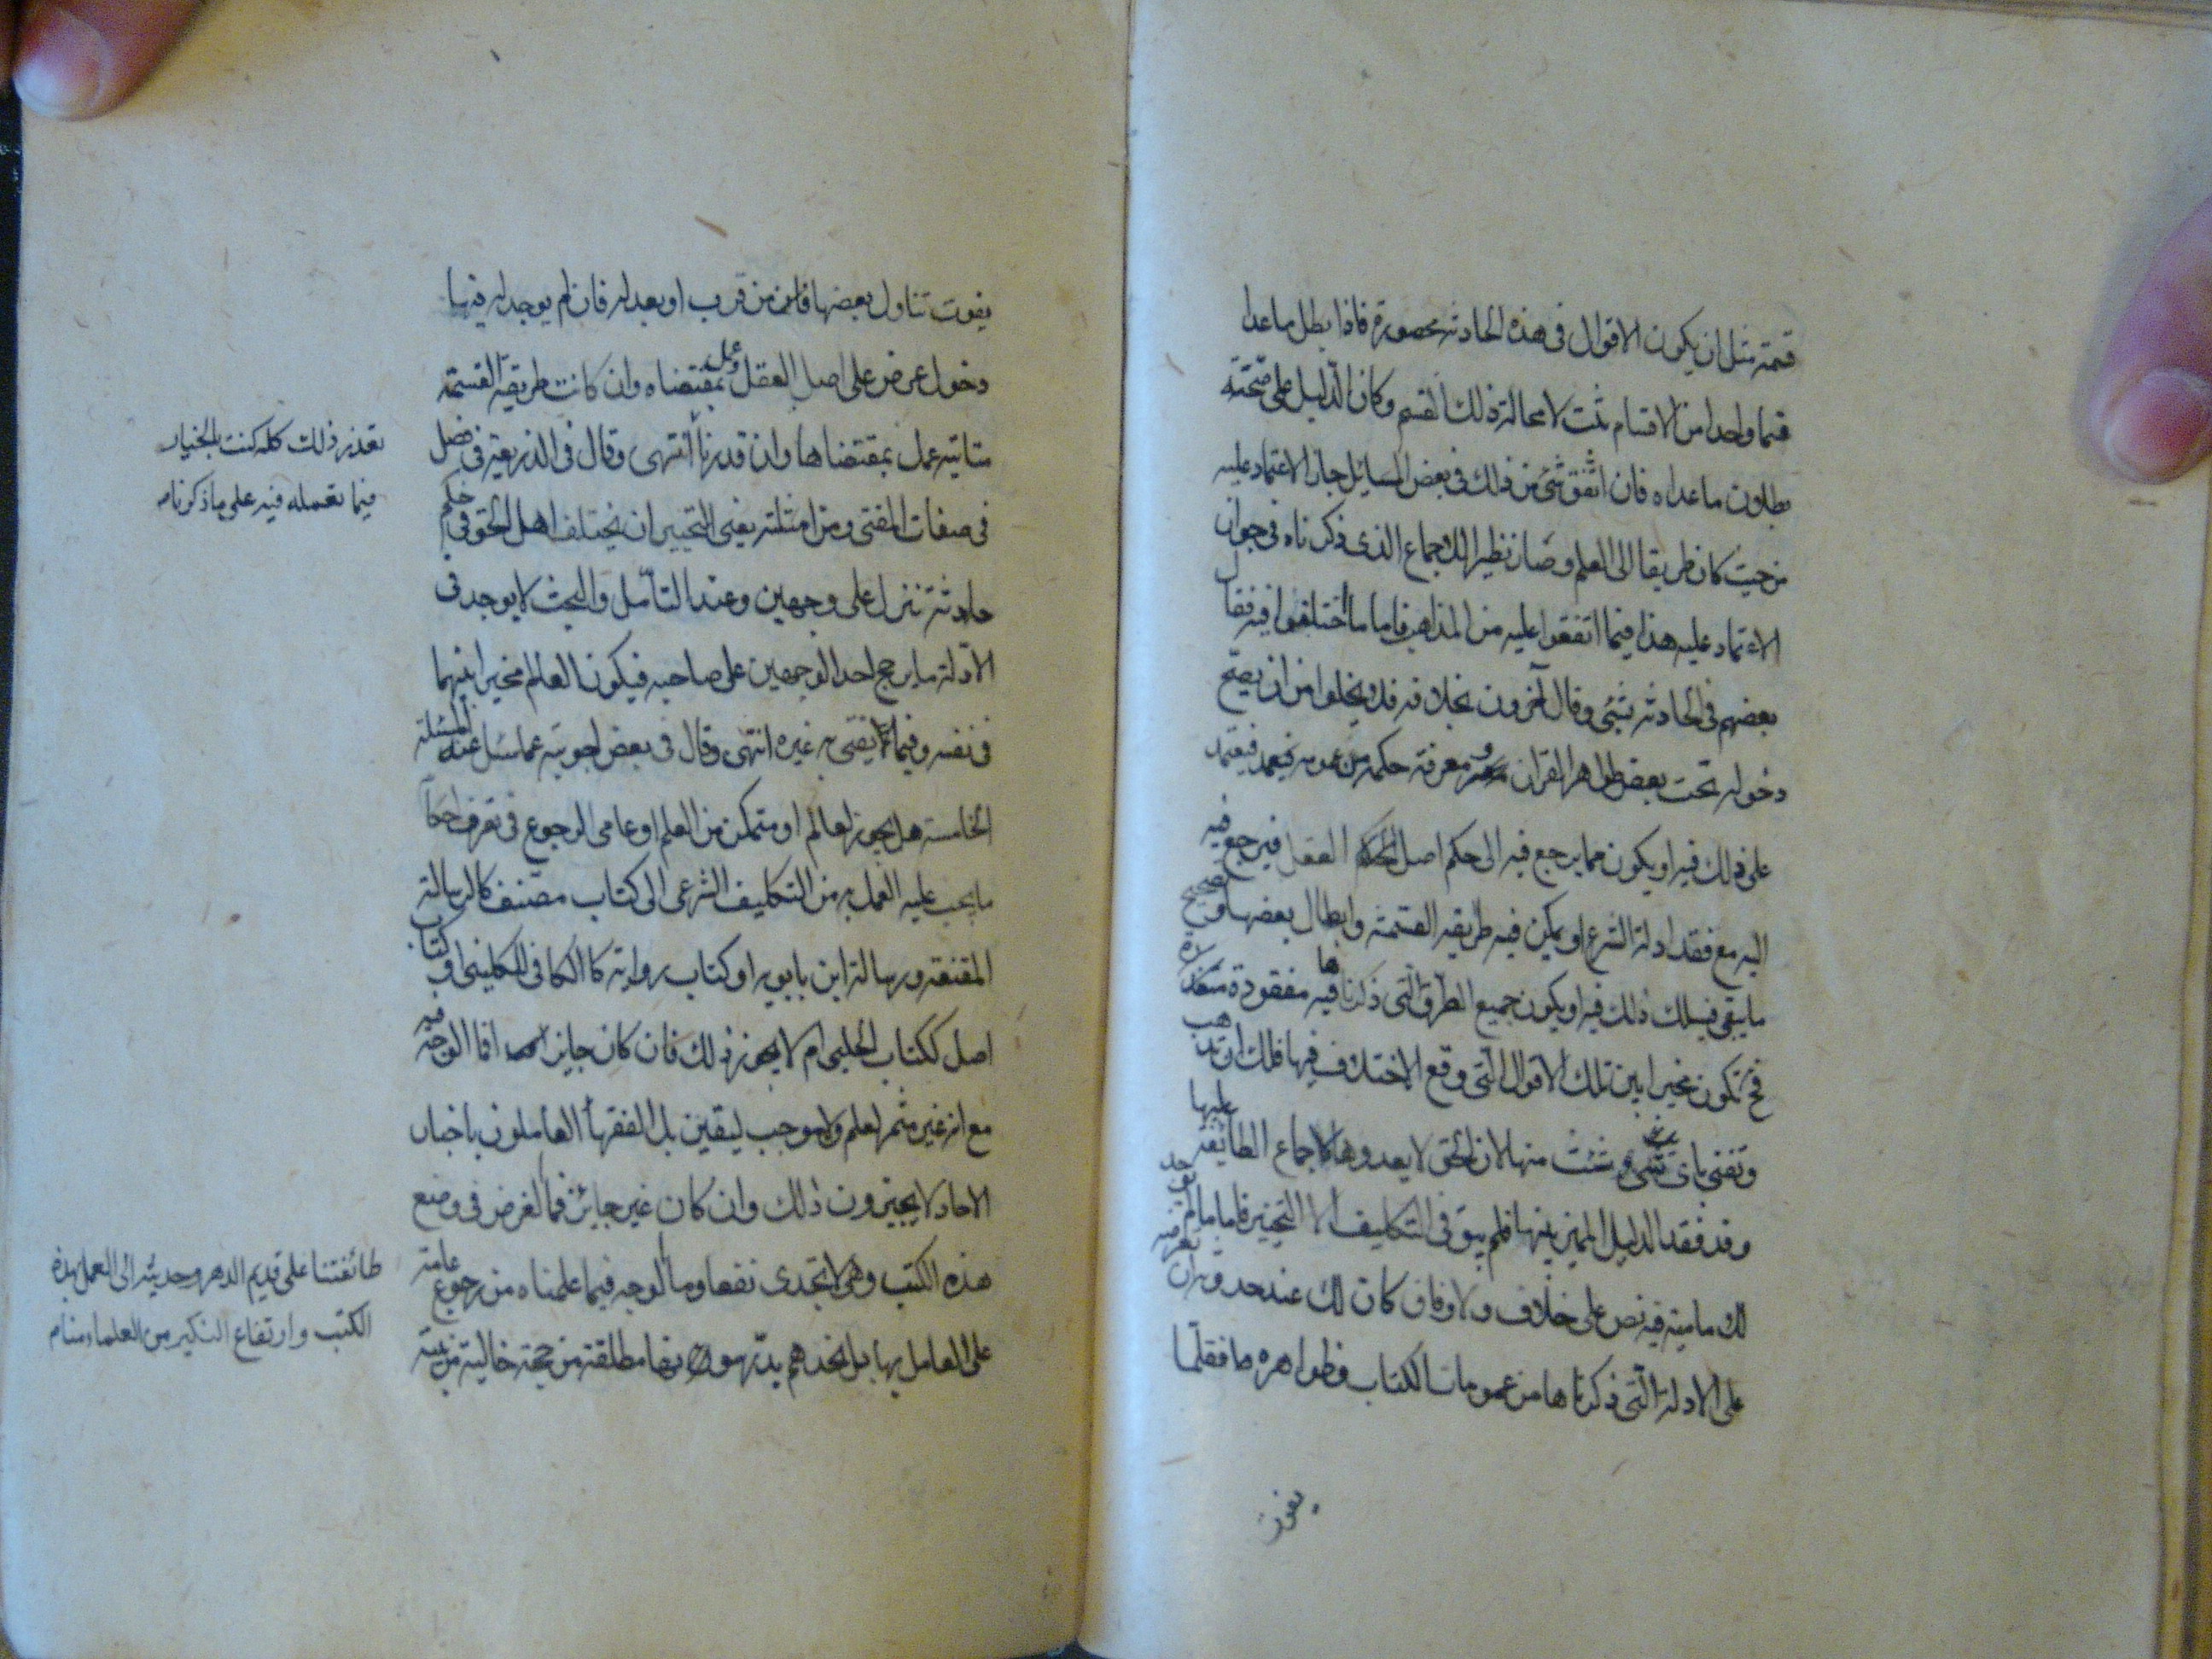 قسمة مثل ان يكون الاقوال فى هذه الحادثة محصورة فاذا بطل ماعدا
قسما واحدا من الاقسام ثبت لا محالة ذلك القسم وكان الدليل على صحّته
بطلان ماعداه فان اتّفق شئ من ذلك فى بعض المسايل جاز الاعتماد عليه
من حيث كان طريقا الى العلم وصار نظير الاجماع الذى ذكرناه فى جواز
الاعتماد عليه هذا فيما اتفقوا عليه من المذاهب فاما ما اختلفوا فيه فقال
بعضهم فى الحادثة بشئ وقال آخرون بخلافه فلا يخلوا من ان يصح
دخوله تحت بعض ظواهر القران ومعرفة حكمه من عمومه فيعتمد
على ذلك فيه او يكون مما يرجع فيه الى حكم اصل العقل فيرجع فيه
اليه مع فقد ادلة الشرع او يمكن فيه طريقه القسمة وابطال بعضها وتصحيح
ما يبقى فيسلك ذلك فيه او يكون جميع الطرق الّتى ذكرناها فيه مفقودة متعذرة
فح تكون مخيرا بين تلك الاقوال الّتى وقع الاختلاف فيها فلك ان تذهب
وتفتى باى شئت منها لان الحق لا يعدوها لاجماع الطائفة عليها
وقد فقد الدليل المميز بينها فلم يبق فى التكليف الا التخيير فاما ما لم توجد
لك مامية فيه نص على خلاف ولا وفاق كان لك عند حدوثه ان تعرضه
على الادلة الّتى ذكرناها من عمومات الكتاب وظواهره ما فقلّما
يفوت
يفوت تناول بعضها من قرب او بعد له فان لم يوجد له فيها
دخول عرض على اصل العقل وعمل بمقتضاه وان كانت طريقة القسمة
متاتية عمل بمقتضاها وان قدرنا انتهى وقال فى الذريعة فى فصل
تعذر ذلك كله كنت بالخيار
فيما تعمله فيه على ما ذكرناه
فى صفات المفتى ومن امثلته يعنى التخيير ان يختلف اهل الحق فى حكم
حادثة تنزل على وجهين وعند التأمل والبحث لا يوجد فى
الادّلة ما يرجح احد الوجهين على صاحبه فيكون العالم مخيرا بينهما
فى نفسه وفيما يفتى به غيره انتهى وقال فى بعض اجوبته عما سئل عنه المسئلة
الخامسة هل يجوز لعالم او متمكن من العلم او عامى الرجوع فى تعرف احكام
ما يجب عليه العمل به من التكليف الشرعى الى كتاب مصنف كالرسالة
المقنعة ورسالة ابن بابويه او كتاب رواية كالكافى للكلينى او كتاب
اصل ككتاب الحلبى ام لا يجوز ذلك فان كان جايزا فما الوجه فيه
مع انه غير مثمر لعلم ولا موجب ليقين بل الفقهاء العاملون باخبار
الاحاد لا يجيزون ذلك وان كان غير جائز فما الغرض فى وضع
هذه الكتب وهى لا تجدى نفعا وما الوجه فيما علمناه من رجوع عامة
طائفتنا على قديم الدهر وحديثه الى العمل بهذه
الكتب وارتفاع النكير من العلماء منا
على العامل بها بل نجدهم يدرسونها مطلقة من جهة خالية من تنبيه